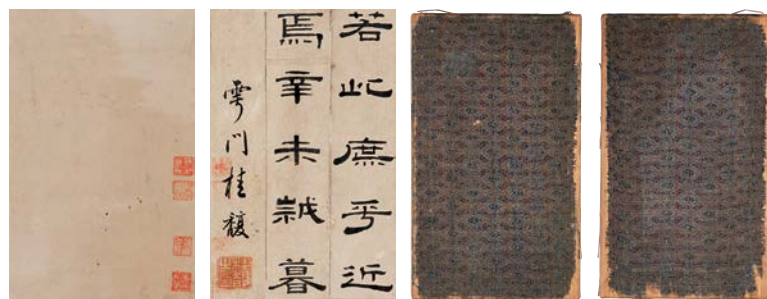 若此庶乎近
焉辛未暮
雩門桂馥